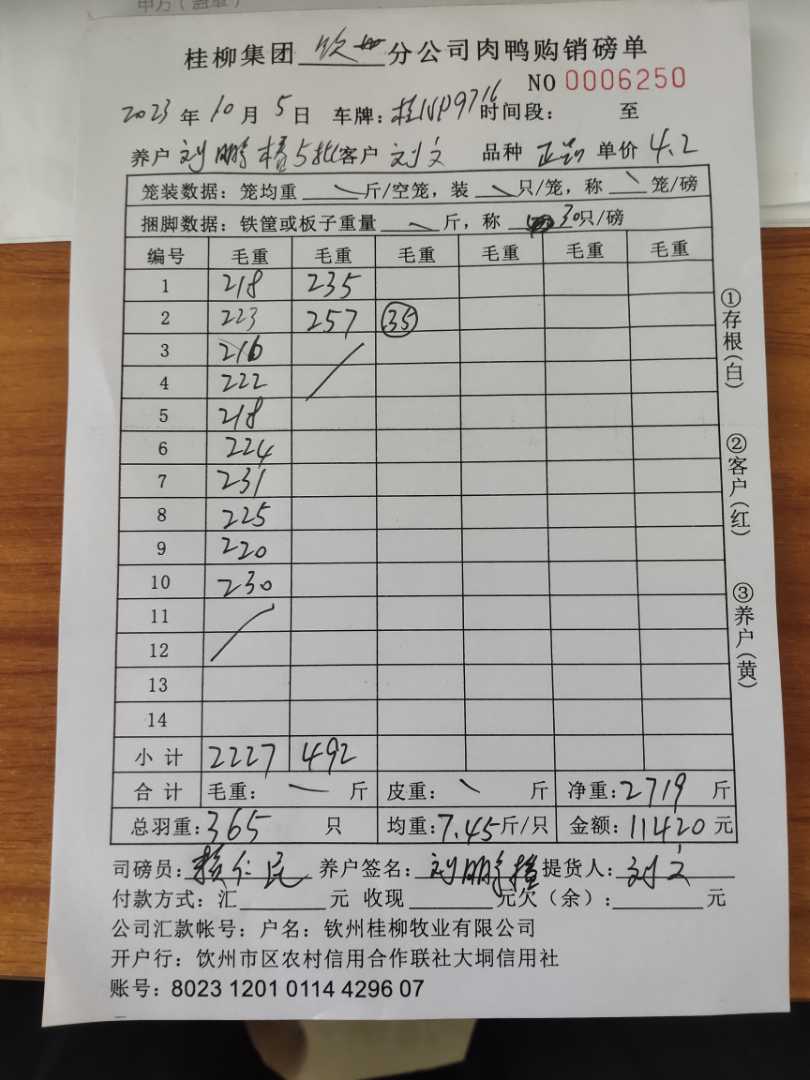 甲方（盖章）
桂柳集团 钦州 分公司肉鸭购销磅单
NO 0006250
2023 年 10 月 5 日 车牌：桂NP9716 时间段： 至
养户 刘鹏 5批 客户 刘文 品种 正 单价 4.2
笼装数据：笼均重 斤/空笼，装 只/笼，称 笼/磅
捆脚数据：铁筐或板子重量 斤，称 30只/磅
编号 毛重 毛重 毛重 毛重 毛重 毛重
1 218 235
2 223 257 35
3 216
4 222
5 218
6 224
7 231
8 225
9 220
10 230
11
12
13
14
小 计 2227 492
合 计 毛重： 斤 皮重： 斤 净重：2719 斤
总羽重：365 只 均重：7.45斤/只 金额：11420 元
司磅员：仁民 养户签名：刘鹏 提货人：刘文
付款方式：汇 元 收现 元欠（余）： 元
公司汇款帐号：户名：钦州桂柳牧业有限公司
开户行：饮州市区农村信用合作联社大垌信用社
账号：8023 1201 0114 4296 07
①存根（白）
②客户（红）
③养户（黄）